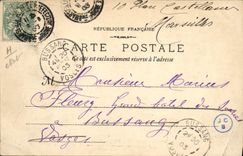 10 Place Castellane
Marseille
RÉPUBLIQUE FRANÇAISE
CARTE POSTALE
Ce côté est exclusivement réservé à l'adresse
BUSSANG
VOSGES
Monsieur Marius
Fleury Grand Hotel des Sources
Bussang
Vosges
BUSSANG